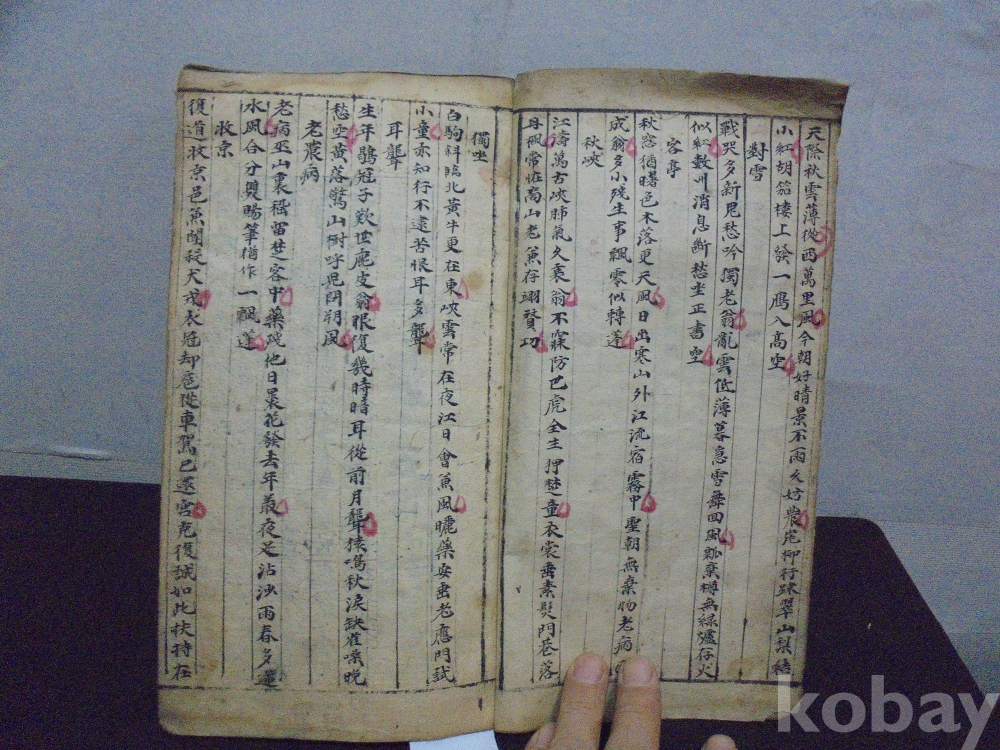 天際秋雲薄從西萬里風今朝好晴景不雨久好農岸柳行疎翠山梨結
小紅胡笳樓上發一鴈入高空
對雪
戰哭多新鬼愁吟獨老翁亂雲低薄暮急雪舞回風瓢棄樽無綠爐存火
似紅數州消息斷愁坐正書空
客亭
秋窓猶曙色木落更天風日出寒山外江流宿霧中聖朝無棄物老病
成翁多小殘生事飄零似轉蓬
秋峽
江濤萬古峽肺氣久衰翁不寐防巴虎全生押楚童衣裳垂素髮門巷落
丹楓常恠商山老兼存翊贊功
獨坐
白駒斜臨北黃牛更在東峽雲常在夜江日會兼風曬藥安垂老應門試
小童亦知行不逮苦恨耳多聾
耳聾
生年鶡冠子歎世鹿皮翁眼復幾時暗耳從前月聾猿鳴秋淚缺雀噪晚
愁空黃落驚山樹呼兒問朔風
老衰病
老病巫山裏稽留楚客中藥殘他日裹花發去年叢夜足沾沙雨春多逆
水風合分雙賜筆猶作一飄蓬
收京
復道收京邑兼聞殺犬戎衣冠却扈從車駕已還宮克復誠如此扶持在
kobay